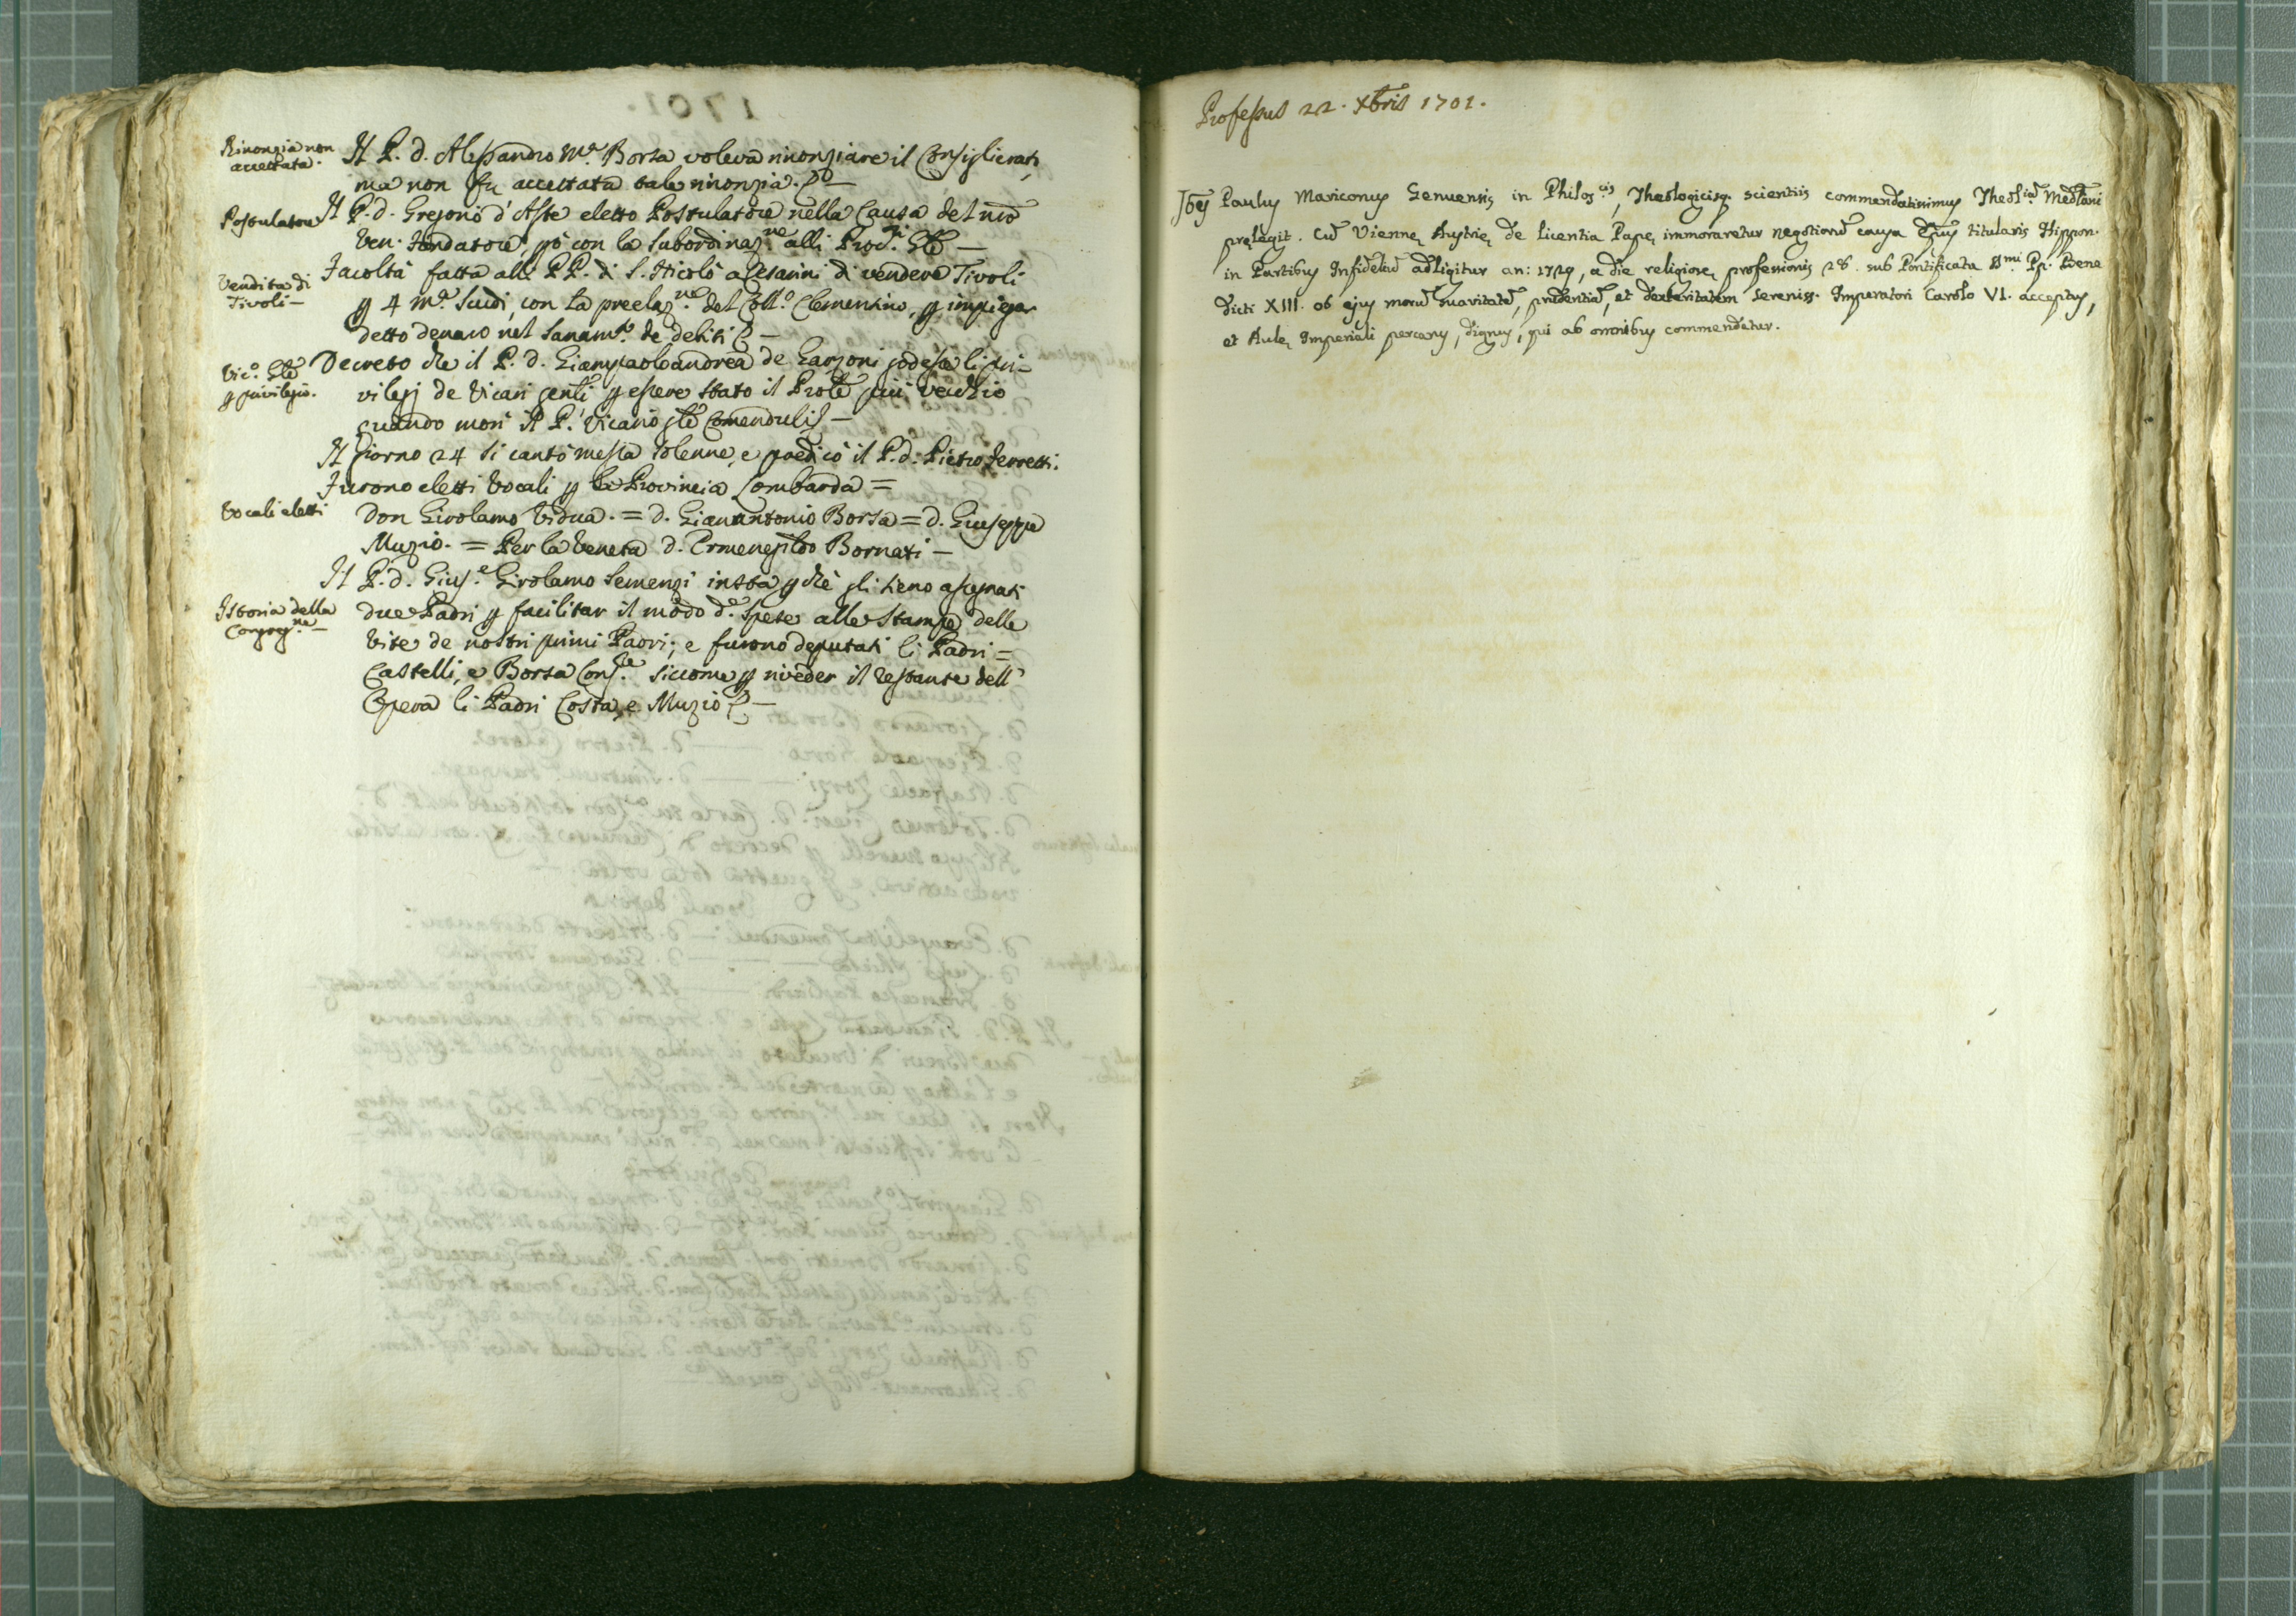 Rinonzia non
accettata.
Il P. d. Alessandro Mª Borsa voleva rinonziare il Consiglierati,
ma non fu accettata tale rinonzia.
Postulatore
Il P. d. Gregorio d'Aste eletto Postulatore nella Causa del nrõ
Ven. Fondatore, pò con la subordinazne alli Procri Gli —
Vendita di
Tivoli —
Facoltà fatta alli PP. di S. Nicolò a Cesarini di vendere Tivoli
p 4 mª Scudi, con la preelazne del Collo Clementino, p impiegar
detto denaro nel sanamto de debiti
Vico. Gle
p privilegio.
Decreto che il P. d. Gianpaoloandrea de Garzoni godesse li pri-
vilegj de Vicarj genli p essere stato il Prole più vecchio
quando morì il P. Vicario gle Comenduli —
Il giorno 24 si cantò messa solenne, e predicò il P. d. Pietro Ferretti.
Furono eletti Vocali p la Provincia Lombarda =
Vocali eletti
Don Girolamo Vidua. = d. Gianantonio Borsa = d. Giuseppe
Muzio. = Per la Veneta d. Ermenegildo Bornati —
Il P. d. Gius.e Girolamo Semenzi insta p chè gli sieno assegnati
Istoria della
Congregne —
due Padri p facilitar il modo de spese alle Stampe delle
Vite de nostri primi Padri; e furono deputati li Padri =
Castelli, e Borsa Consre siccome p riveder il restante dell'
Opera li Padri Costa, e Muzio —
Professus 22. Xbris 1701.
Joẽs Paulus Mariconus Genuensis in Philoscis, Theologicisq. scientiis commendatissimus Theoliã Medlani
pręlegit. Cũ Viennę Austrię de licentia Papę immoraretur negotiorũ causa Epus titularis Hippon.
in Partibus Infideliũ adligitur an: 1729, a die religiosę professionis 28. sub Pontificatu Smi Pp. Bene
dicti XIII. ob ejus morũ suavitatẽ, prudentiã, et dexteritatem sereniss. Imperatori Carolo VI. acceptus,
et Aulę Imperiali percarus, dignus, qui ab omnibus commendetur.